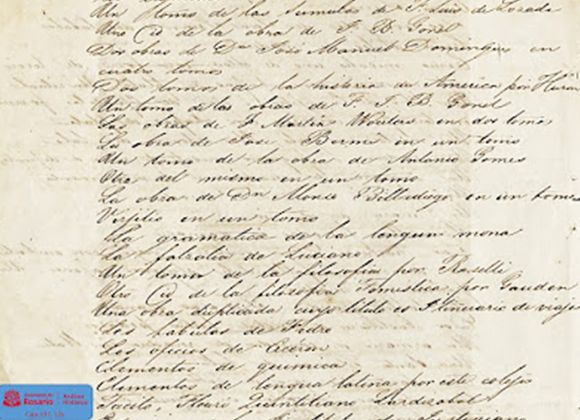 Un tomo de las sumulas de P. Luis de Losada
Otro Cd de la obra de F. B. Gonel
Dos obras de Dn José Manuel Domingues en
cuatro tomos
Dos tomos de la historia de America por
Un tomo de las obras de F. T. B. Gonel
Las obras de J. Martin Wouters en dos tomos
La obra de Jose Bermi en un tomo
Un tomo de la obra de Antonio Gomes
Otro del mismo en un tomo
La obra de Dn Alonso Billadiego en un tomo
Virjilio en un tomo
La gramatica de la lengua mona
La de Luciano
Un tomo de la filosofia por Roselli
Otro Cd de la filosofia Tomistica por Gauden
Una obra duplicada cuyo titulo es Itinerario de viaje
Las fabulas de Fedro
Los oficios de Ciceron
Elementos de quimica
Elementos de lengua latina por este colejo
Tacito, Floro, Quintiliano
Universidad del
Rosario
Archivo
Histórico